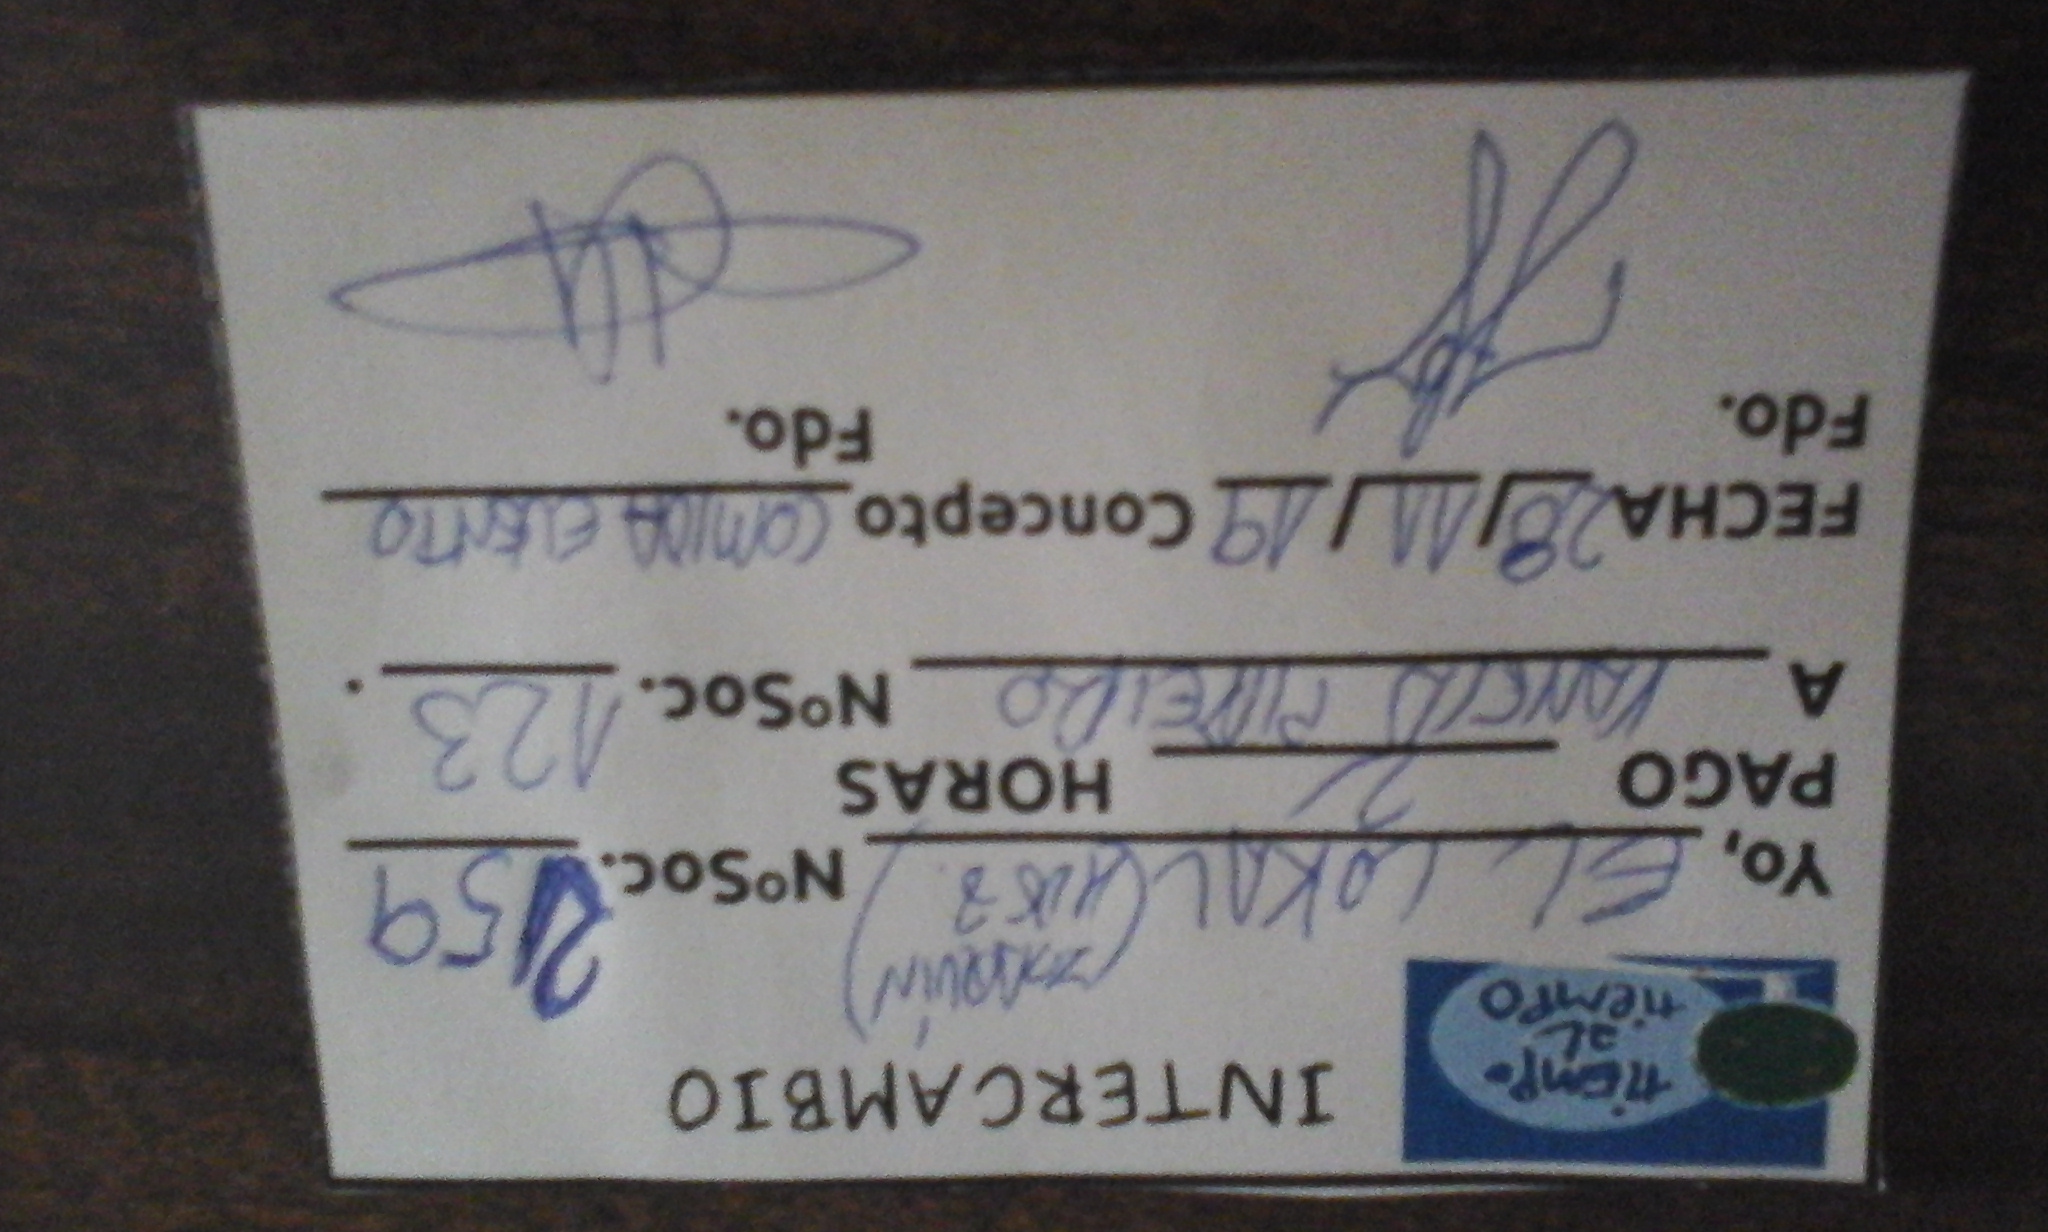 TIEMPO
AL
TIEMPO
INTERCAMBIO
Yo, EL LOKAL (JOAQUÍN) NºSoc. 159
PAGO 2 HORAS
A VANESA PIÑEIRO NºSoc. 123.
FECHA 28/11/19 Concepto COMIDA EVENTO
Fdo. Fdo.